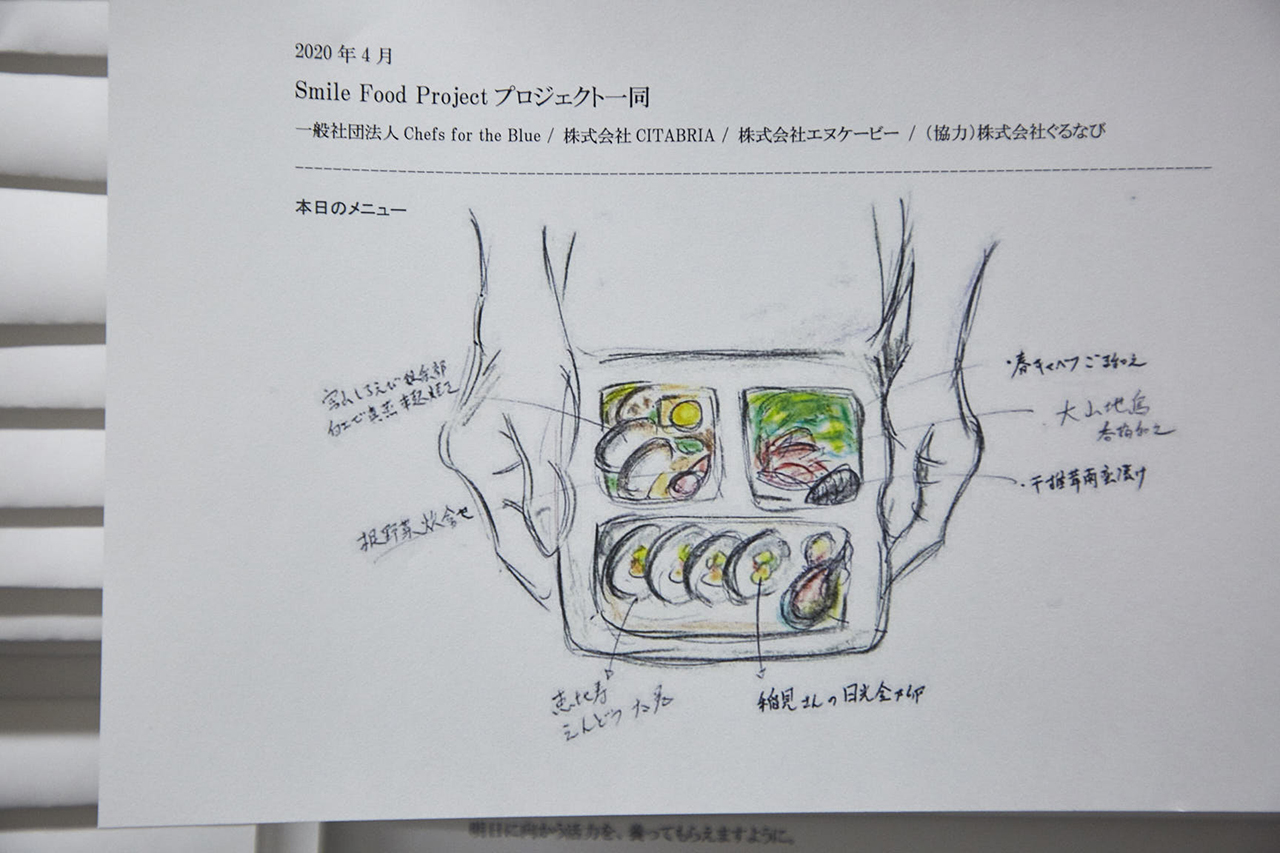 2020年4月
Smile Food Projectプロジェクト一同
一般社団法人Chefs for the Blue / 株式会社CITABRIA / 株式会社エヌケービー / (協力)株式会社ぐるなび
本日のメニュー
・春キャベツごま和え
大山地鶏
・干椎茸南蛮漬け
根野菜炊合せ
恵比寿
えんどう
稲見さんの日光金卵
明日に向かう活力を、養ってもらえますように。